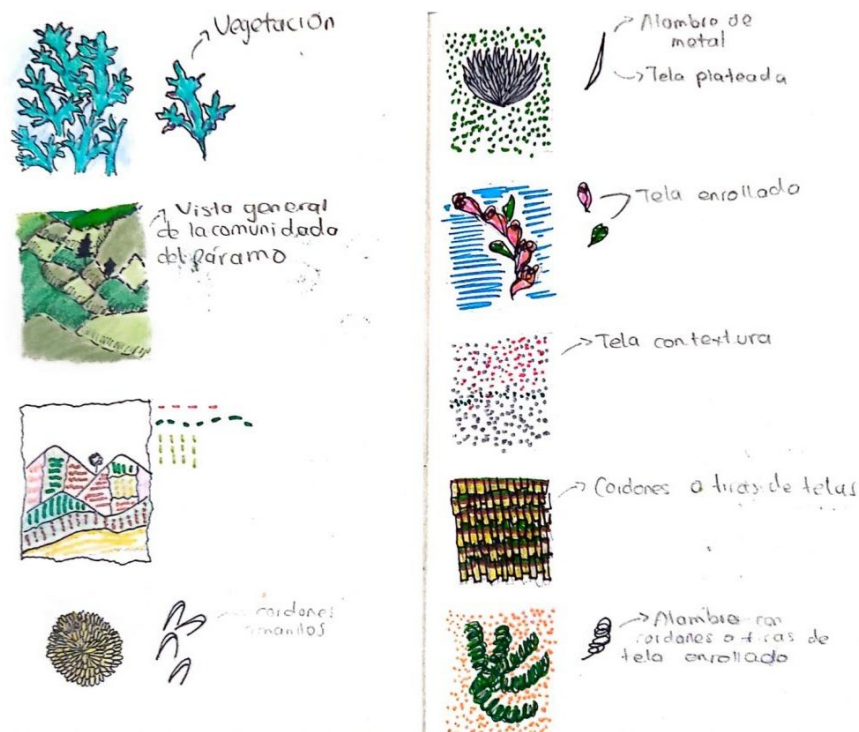 Vegetación
Vista general
de la comunidada
del páramo
cordones
amarillos
Alambre de
metal
Tela plateada
Tela enrollado
Tela con textura
Cordones o tiras de telas
Alambre con
cordones o tiras de
tela enrollado